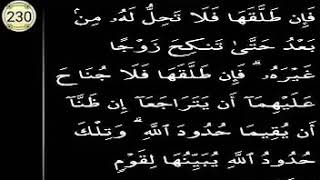 230
فَإِن طَلَّقَهَا فَلَا تَحِلُّ لَهُۥ مِنۢ
بَعْدُ حَتَّىٰ تَنكِحَ زَوْجًا
غَيْرَهُۥ ۗ فَإِن طَلَّقَهَا فَلَا جُنَاحَ
عَلَيْهِمَآ أَن يَتَرَاجَعَآ إِن ظَنَّآ
أَن يُقِيمَا حُدُودَ ٱللَّهِ ۗ وَتِلْكَ
حُدُودُ ٱللَّهِ يُبَيِّنُهَا لِقَوْمٍ